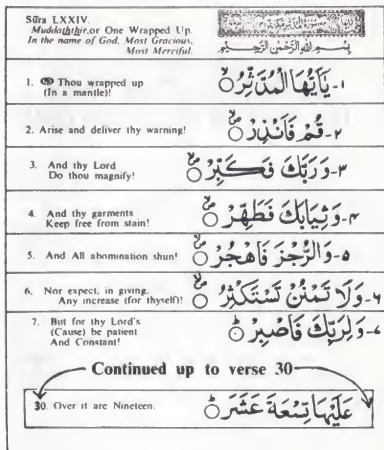 Sūra LXXIV.
Muddaththir, or One Wrapped Up.
In the name of God, Most Gracious,
Most Merciful.
بِسْمِ اللهِ الرَّحْمٰنِ الرَّحِيْمِ
1. Thou wrapped up
(In a mantle)!
١- يٰٓاَيُّهَا الْمُدَّثِّرُ ○
2. Arise and deliver thy warning!
٢- قُمْ فَاَنْذِرْ ○
3. And thy Lord
Do thou magnify!
٣- وَرَبَّكَ فَكَبِّرْ ○
4. And thy garments
Keep free from stain!
٤- وَثِيَابَكَ فَطَهِّرْ ○
5. And All abomination shun!
٥- وَالرُّجْزَ فَاهْجُرْ ○
6. Nor expect, in giving,
Any increase (for thyself)!
٦- وَلَا تَمْنُنْ تَسْتَكْثِرُ ○
7. But for thy Lord's
(Cause) be patient
And Constant!
٧- وَلِرَبِّكَ فَاصْبِرْ ○
Continued up to verse 30
30. Over it are Nineteen.
عَلَيْهَا تِسْعَةَ عَشَرَ ○